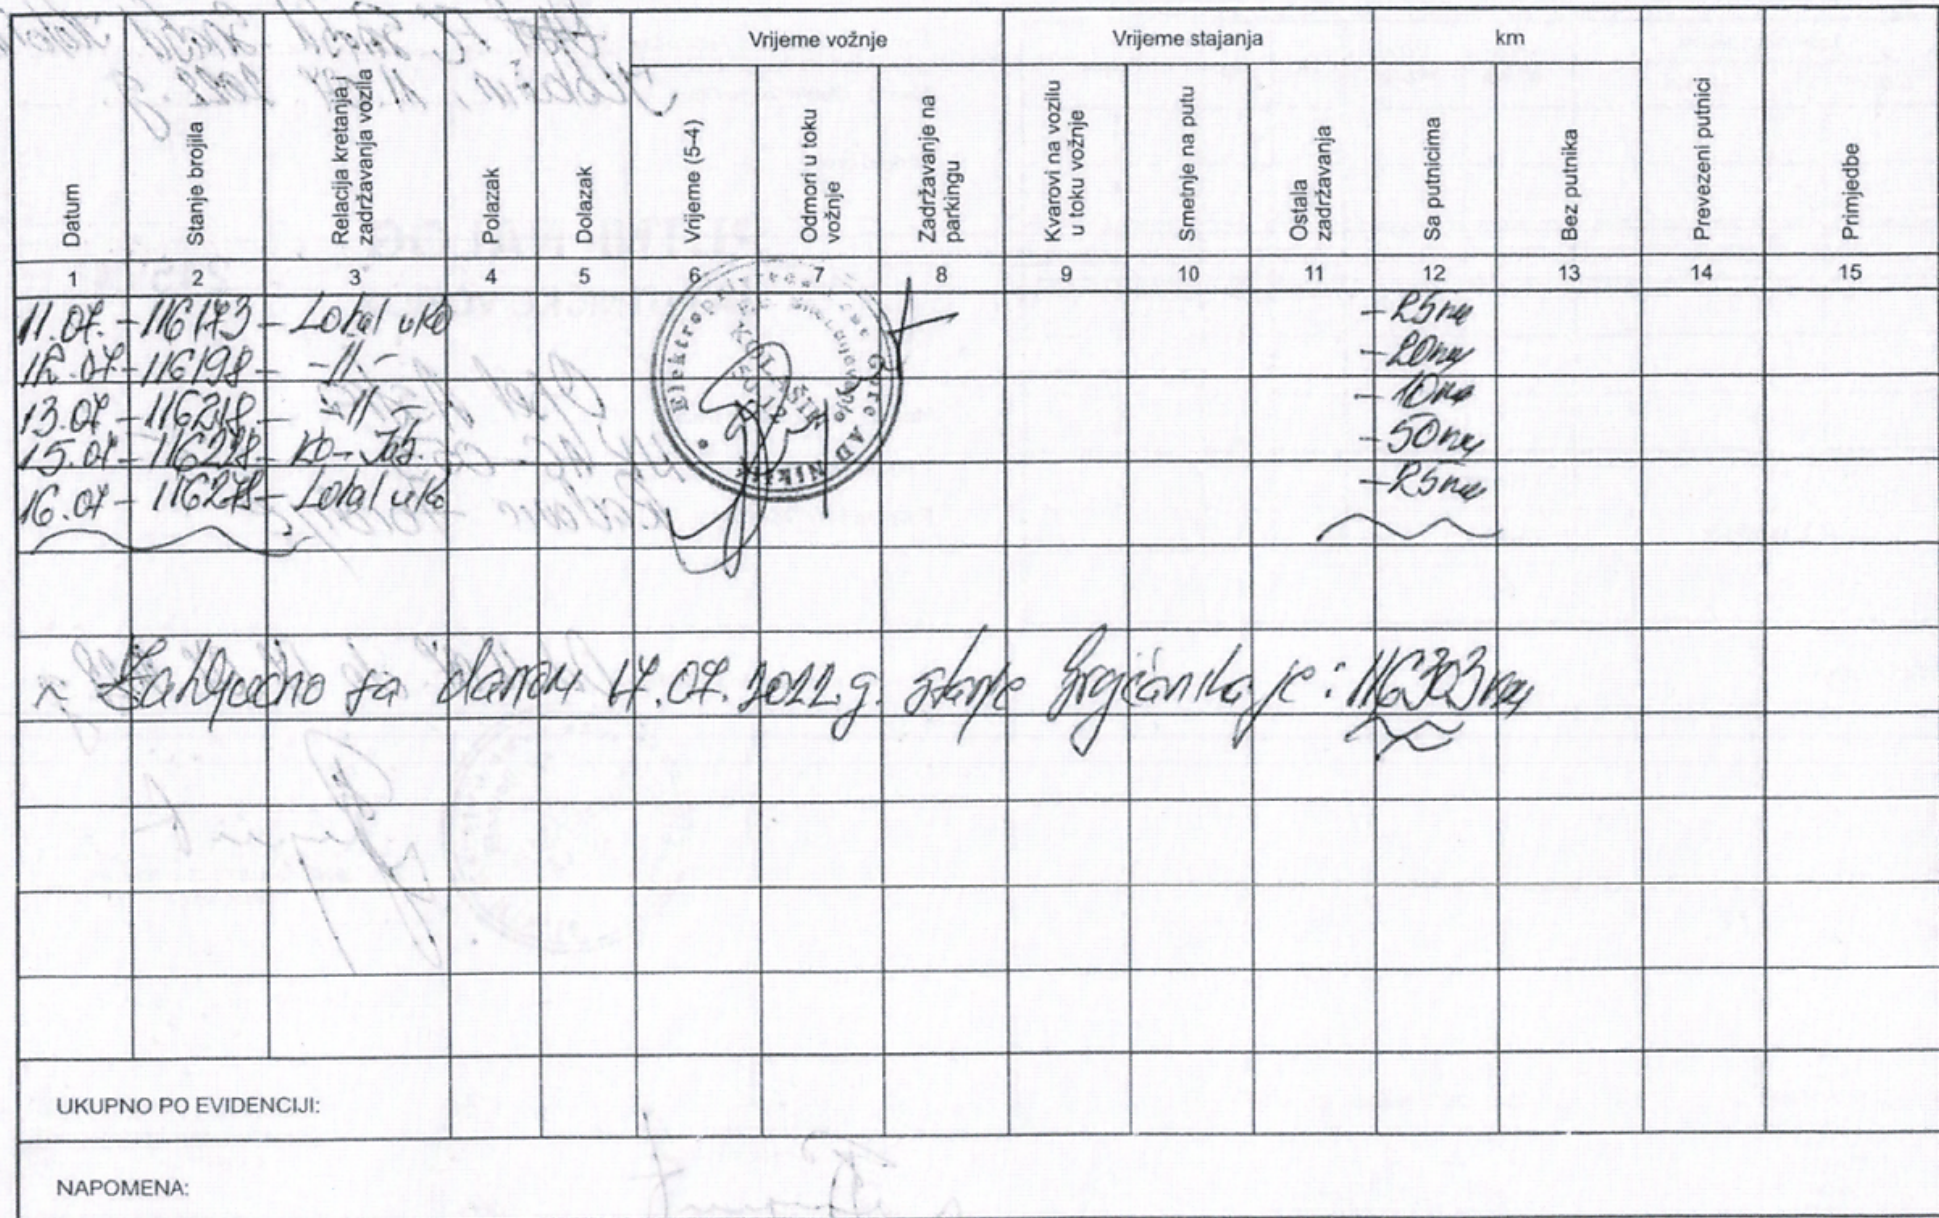 Vrijeme vožnje Vrijeme stajanja km
Datum
Stanje brojila
Relacija kretanja i zadržavanja vozila
Polazak
Dolazak
Vrijeme (5-4)
Odmori u toku vožnje
Zadržavanje na parkingu
Kvarovi na vozilu u toku vožnje
Smetnje na putu
Ostala zadržavanja
Sa putnicima
Bez putnika
Prevezeni putnici
Primjedbe
1 2 3 4 5 6 7 8 9 10 11 12 13 14 15
11.07. - 116173 - Lokal uKo - 25km
12.07 - 116198 - -11- - 20km
13.07 - 116218 - -11- - 10km
15.07 - 116228 - KO - - 50km
16.07 - 116278 - Lokal uKo - 25km
Elektroprivreda Crne Gore AD
Zaključno sa danom 17.07.2022.g. stanje je: 116303km
UKUPNO PO EVIDENCIJI:
NAPOMENA: